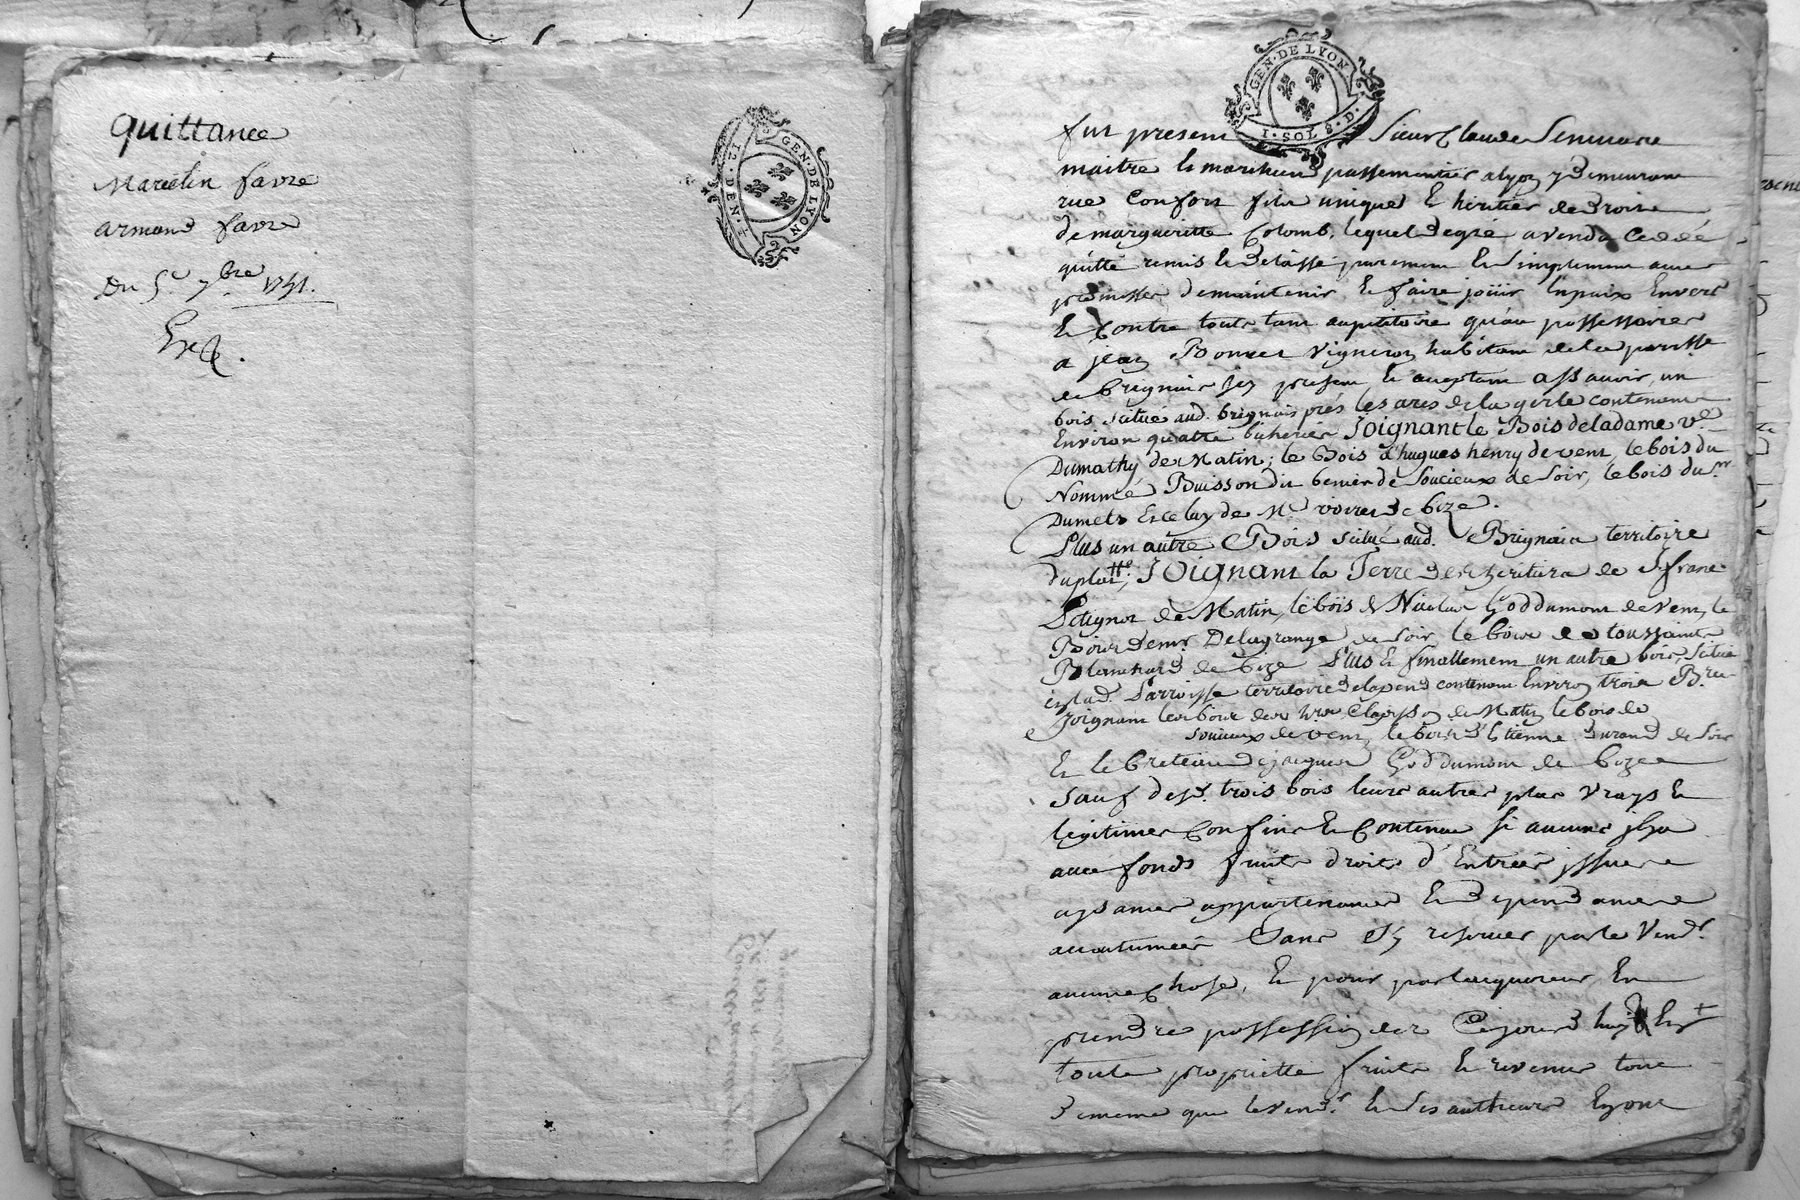 quittance
Marcelin favre
armand favre
Du 5e 7bre 1741.
GEN·DE·LYON
GEN·DE LYON
I·SOLS·D·
fut present Sieur Claude
maitre & marchand passementier a lyon y demeurant
rue Confort fils unique & heritier de droit
de margueritte Colomb, lequel de gré a vendu Ceddé
quitté remis & delaissé purement & simplement avec
promesse de maintenir & faire joüir en paix Envers
& Contre touts tant au petitoire qu'au possessoire
a jean Bonnet vigneron habitant de la parroisse
de brignais jcy present & acceptant assavoir, un
bois scitué aud. brignais près les arcs de la gerle contenant
Environ quatre bicherées Joignant le Bois de la dame ve
Dumathy de Matin; le Bois d'hugues henry de vent, le bois du
Nommé Buisson du de Soucieux de Soir, le bois du sr
Dumets Et celuy de Mr de bize.
Plus un autre Bois scitué aud. Brignais territoire
Joignant la Terre des heritiers de sr franc
de Matin, le bois de Nicolas Goddumont de vent, le
Bois de mr. Delagrange de Soir, le bois de toussaint
Blanchard de bize Plus & finallement un autre bois, scitué
lad. Parroisse territoire contenant Environ trois
Joignant les bois de de Matin le bois de
Soucieux de vent, le bois d'Etienne durand de Soir
Et le de jacques Goddumont de bize
Sauf desd. trois bois leurs autres plus vrays &
legitimes Confins & Contenue si aucuns jl y a
avec fonds fruits droits d'Entrées jssues
aysances appartenances & dependances
accoutumées Sans s'y reserver par le Vendr.
aucune Chose, & pour par l'acquereur En
prendre possession dez Cejourdhuy En
toute proprietté fruits & revenus tout
de meme que le vendr. & ses autheurs En ont